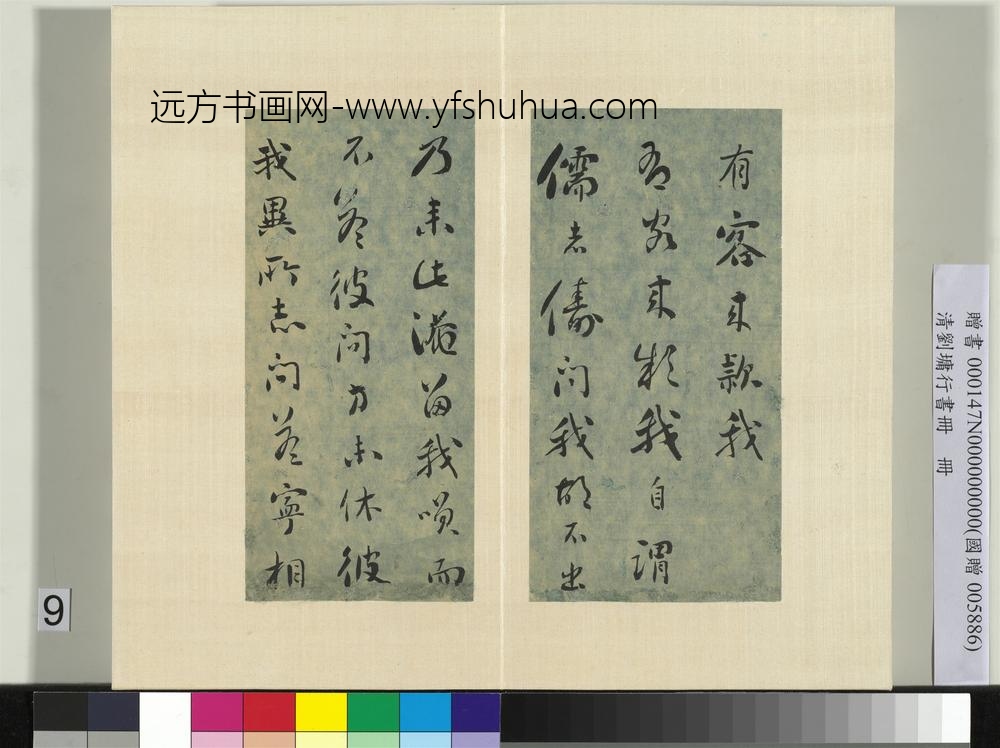 远方书画网-www.yfshuhua.com
有客來款我
客來我自謂
儒者儔問我胡不出
乃來此淹留我而
不答彼問方未休彼
我異所志問答寧相
贈書 000147N000000000(國贈 005886)
清劉墉行書冊 冊
9